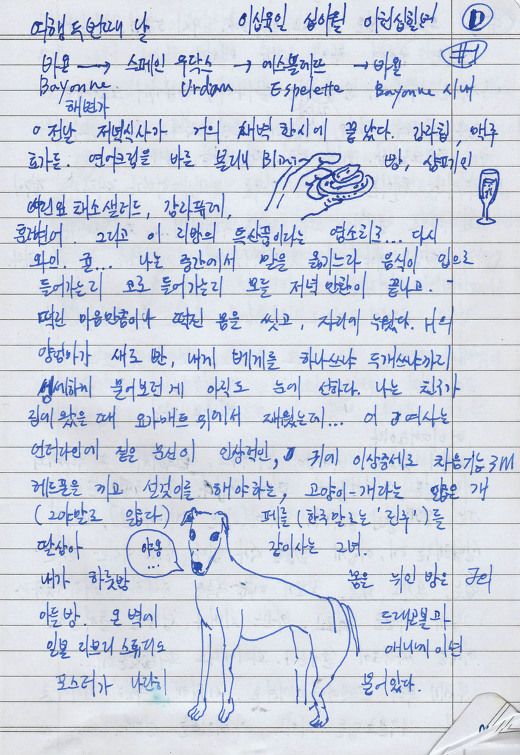 여행 두번째 날 이십육일 십이월 이천십칠년 D
#1
바욘 → 스페인 우닥스 → 에스플레뜨 → 바욘
Bayonne Urdax Espelette Bayonne 시내
해변가
이 전날 저녁식사가 거의 새벽 한시에 끝났다. 감자칩, 맥주
토가든. 연어크림을 바른 블리니 Blini 빵, 샴페인
채소샐러드, 감자퓌레,
훈제연어. 그리고 이 지방의 특산품이라는 염소치즈... 다시
와인. 귤... 나는 중간에서 말을 옮기느라 음식이 입으로
들어가는지 코로 들어가는지 모를 저녁 만찬이 끝나고.
떡진 마음만큼이나 떡진 몸을 씻고, 자리에 누웠다. H의
양엄마가 새로 빤, 내게 베게를 하나쓰냐 두개쓰냐까지
세세하게 물어보던 게 아직도 눈에 선하다. 나는 친구가
집에 왔을 때 요가매트 위에서 재웠는데... 이 여사는
언더라인에 짙은 눈신이 인상적인, 귀에 이상증세로 차음기능 3M
헤드폰을 끼고 설겆이를 해야하는, 고양이-개라는 얇은 개
(그야말로 얇다) 페를 (한국말로는 '진주')를
딸삼아 야옹... 같이사는 그녀.
내가 하룻밤 몸을 뉘인 방은 J의
아들방 온 벽에 드래곤볼과
일본 지브리 스튜디오 애니메이션
포스터가 나란히 붙어있다.